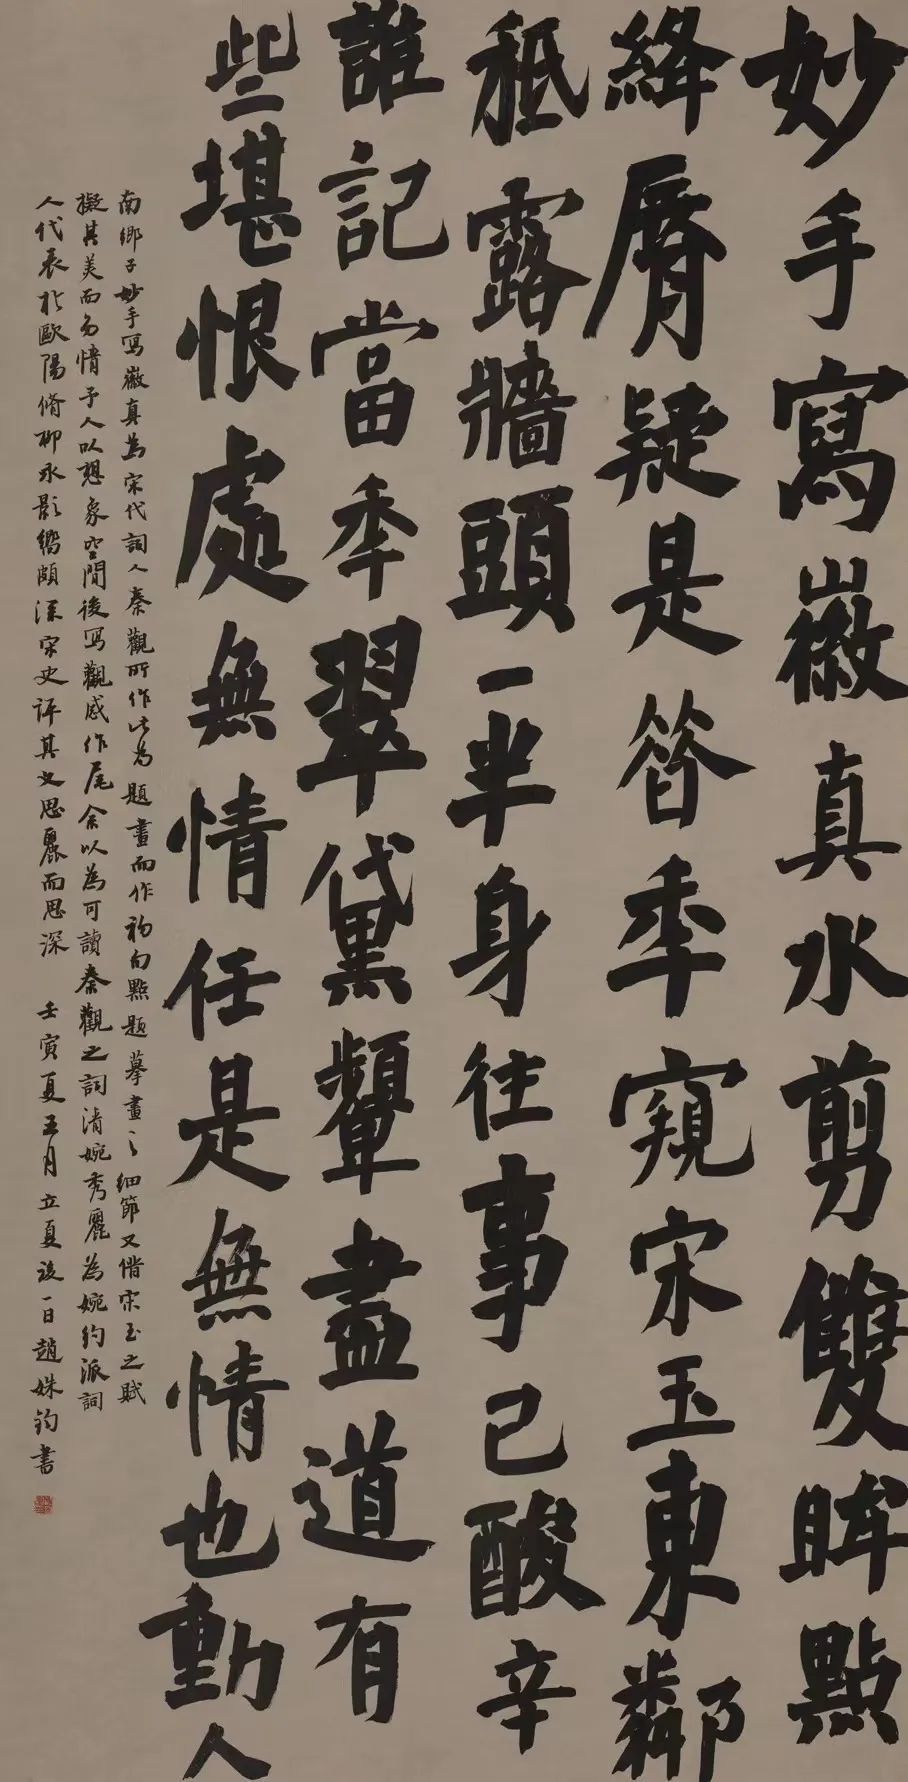 妙手寫徽真水剪雙眸點
絳脣疑是昝秊窺宋玉東鄰
秪露牆頭一半身往事已酸辛
誰記當秊翠黛顰盡道有
些堪恨處無情任是無情也動人
南鄉子妙手寫徽真為宋代詞人秦觀所作此為題畫而作初句點題摹畫之細節又借宋玉之賦
擬其美而勿情予人以想象空間後寫觀感作尾余以為可讀秦觀之詞清婉秀麗為婉約派詞
人代表於歐陽脩柳永影響頗深宋史評其文思麗而思深 壬寅夏五月立夏後一日趙姝鈞書